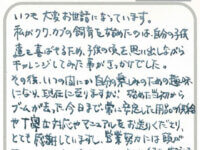 いつも大変お世話になっています。
私がクワ、カブの飼育を始めたのは、自分の子供
達を喜ばせるため、子供の頃を思い出しながら
チャレンジしてみた事がきっかけでした。
その後、いつの間にか自分の楽しみのための趣味
になり、現在に至りますが、始めた当初から
ブームが去って、今日まで常に安定した用品の供給
や丁寧な対応やマニュアルをお送りくださり、
とても感謝しています。営業努力には頭が